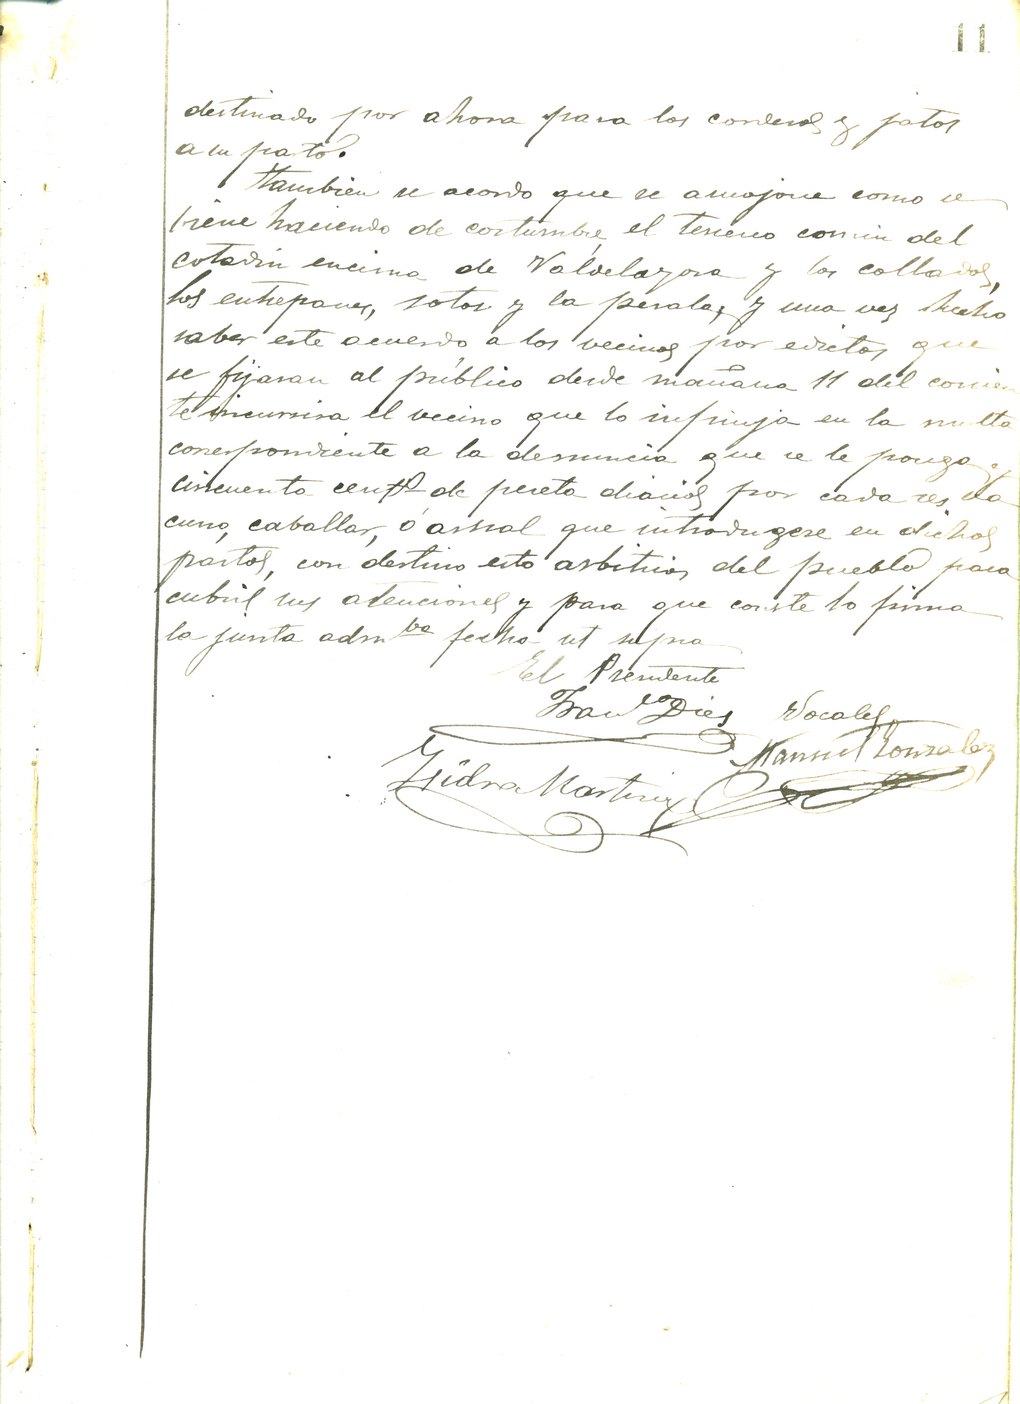 11
destinado por ahora para los corderos y jatos
a su pasto.
Tambien se acordo que se amojone como se
viene haciendo de costumbre, el terreno comun del
cotadin encima de Valdelayora y los collados,
los entrepanes, sotos y la perala, y una vez hecho
saber este acuerdo a los vecinos por edictos que
se fijaran al público desde mañana 11 del corrien
te incurrira el vecino que lo infrinja en la multa
correspondiente a la denuncia que se le ponga y
cincuenta cents de peseta diarios por cada res va
cuno, caballar, ó asnal que introdugese en dichos
pastos, con destino esto arbitrios del pueblo para
cubrir sus atenciones y para que conste lo firma
la junta admtva fecha ut supra
El Presidente
Franco Diez Vocales
Manuel Gonzalez
Ysidro Martinez